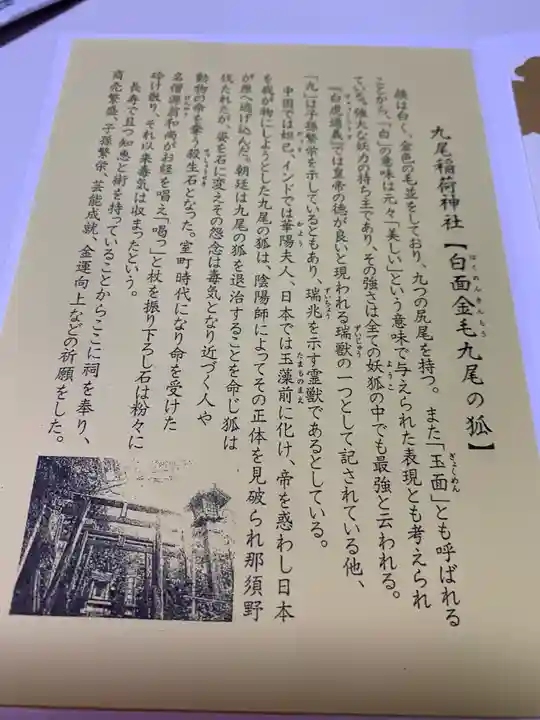 九尾稲荷神社【白面金毛九尾の狐】
はくめんきんもう
顔は白く、金色の毛並をしており、九つの尻尾を持つ。また「玉面」とも呼ばれる
ぎょくめん
ことから、「白」の意味は元々「美しい」という意味で与えられた表現とも考えられ
ている。強大な妖力の持ち主であり、その強さは全ての妖狐の中でも最強と云われる。
ようこ
『白虎通義』では皇帝の徳が良いと現われる瑞獣の一つとして記されている他、
ずいじゅう
「九」は子孫繁栄を示しているともあり、瑞兆を示す霊獣であるとしている。
ずいちょう
中国では妲己、インドでは華陽夫人、日本では玉藻前に化け、帝を惑わし日本
だっき
かよう
たまものまえ
を我が物にしようとした九尾の狐は、陰陽師によってその正体を見破られ那須野
が原へ逃げ込んだ。朝廷は九尾の狐を退治することを命じ狐は
伐たれたが、姿を石に変えその怨念は毒気となり近づく人や
動物の命を奪う殺生石となった。室町時代になり命を受けた
せっしょうせき
名僧源翁和尚がお経を唱え「喝っ」と杖を振り下ろし石は粉々に
げんのう
砕け散り、それ以来毒気は収まったという。
長寿で且つ知恵と術を持っていることから、ここに祠を奉り、
商売繁盛、子孫繁栄、芸能成就、金運向上などの祈願をした。